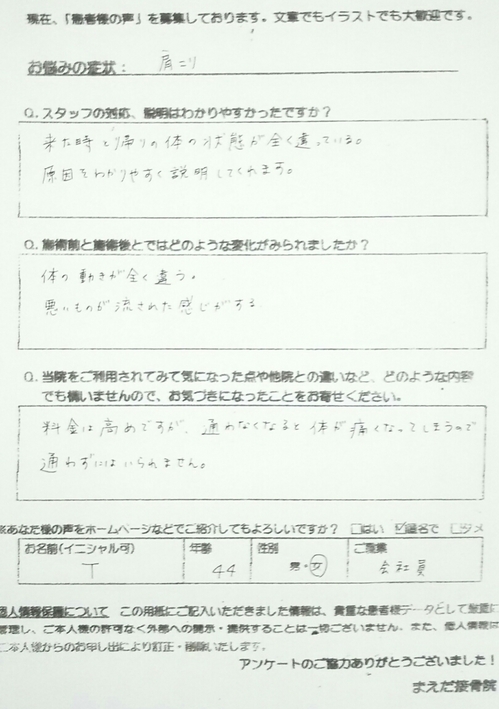 現在、「患者様の声」を募集しております。文章でもイラストでも大歓迎です。
お悩みの症状： 肩こり
Q. スタッフの対応、説明はわかりやすかったですか？
来た時と帰りの体の状態が全く違っている。
原因をわかりやすく説明してくれます。
Q. 施術前と施術後とではどのような変化がみられましたか？
体の動きが全く違う。
悪いものが流された感じがする
Q. 当院をご利用されてみて気になった点や他院との違いなど、どのような内容
でも構いませんので、お気づきになったことをお寄せください。
料金は高めですが、通わなくなると体が痛くなってしまうので
通わずにはいられません。
※あなた様の声をホームページなどでご紹介してもよろしいですか？ □はい ☑匿名で □ダメ
お名前(イニシャル可) 年齢 性別 ご職業
T 44 男・女 会社員
個人情報保護について この用紙にご記入いただきました情報は、貴重な患者様データとして厳重に
管理し、ご本人様の許可なく外部への開示・提供することは一切ございません。また、個人情報は
ご本人様からのお申し出により訂正・削除いたします。
アンケートのご協力ありがとうございました！
まえだ接骨院